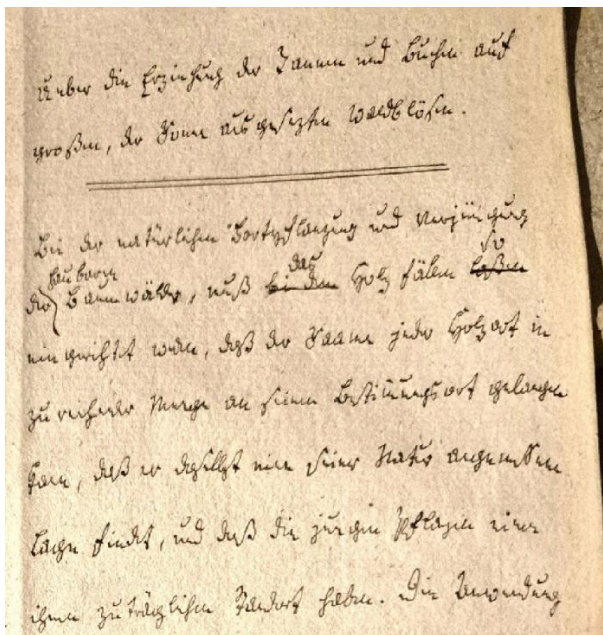 Ueber die Erziehung der Tannen und Buchen auf
großen, der Sonne ausgesezten Waldblösen.
Bei der natürlichen Fortpflanzung und Verjüngung
der haubaren Bannwälder, muß bei dem das Holz fällen laßen so
eingerichtet werden, daß der Saame jeder Holzart in
zureichender Menge an seinen Bestimmungsort gelangen
kann, daß er daselbst eine seiner Natur angemessene
Lage findet, und daß die jungen Pflanzen einen
ihnen zuträglichen Standort haben. Die Anwendung